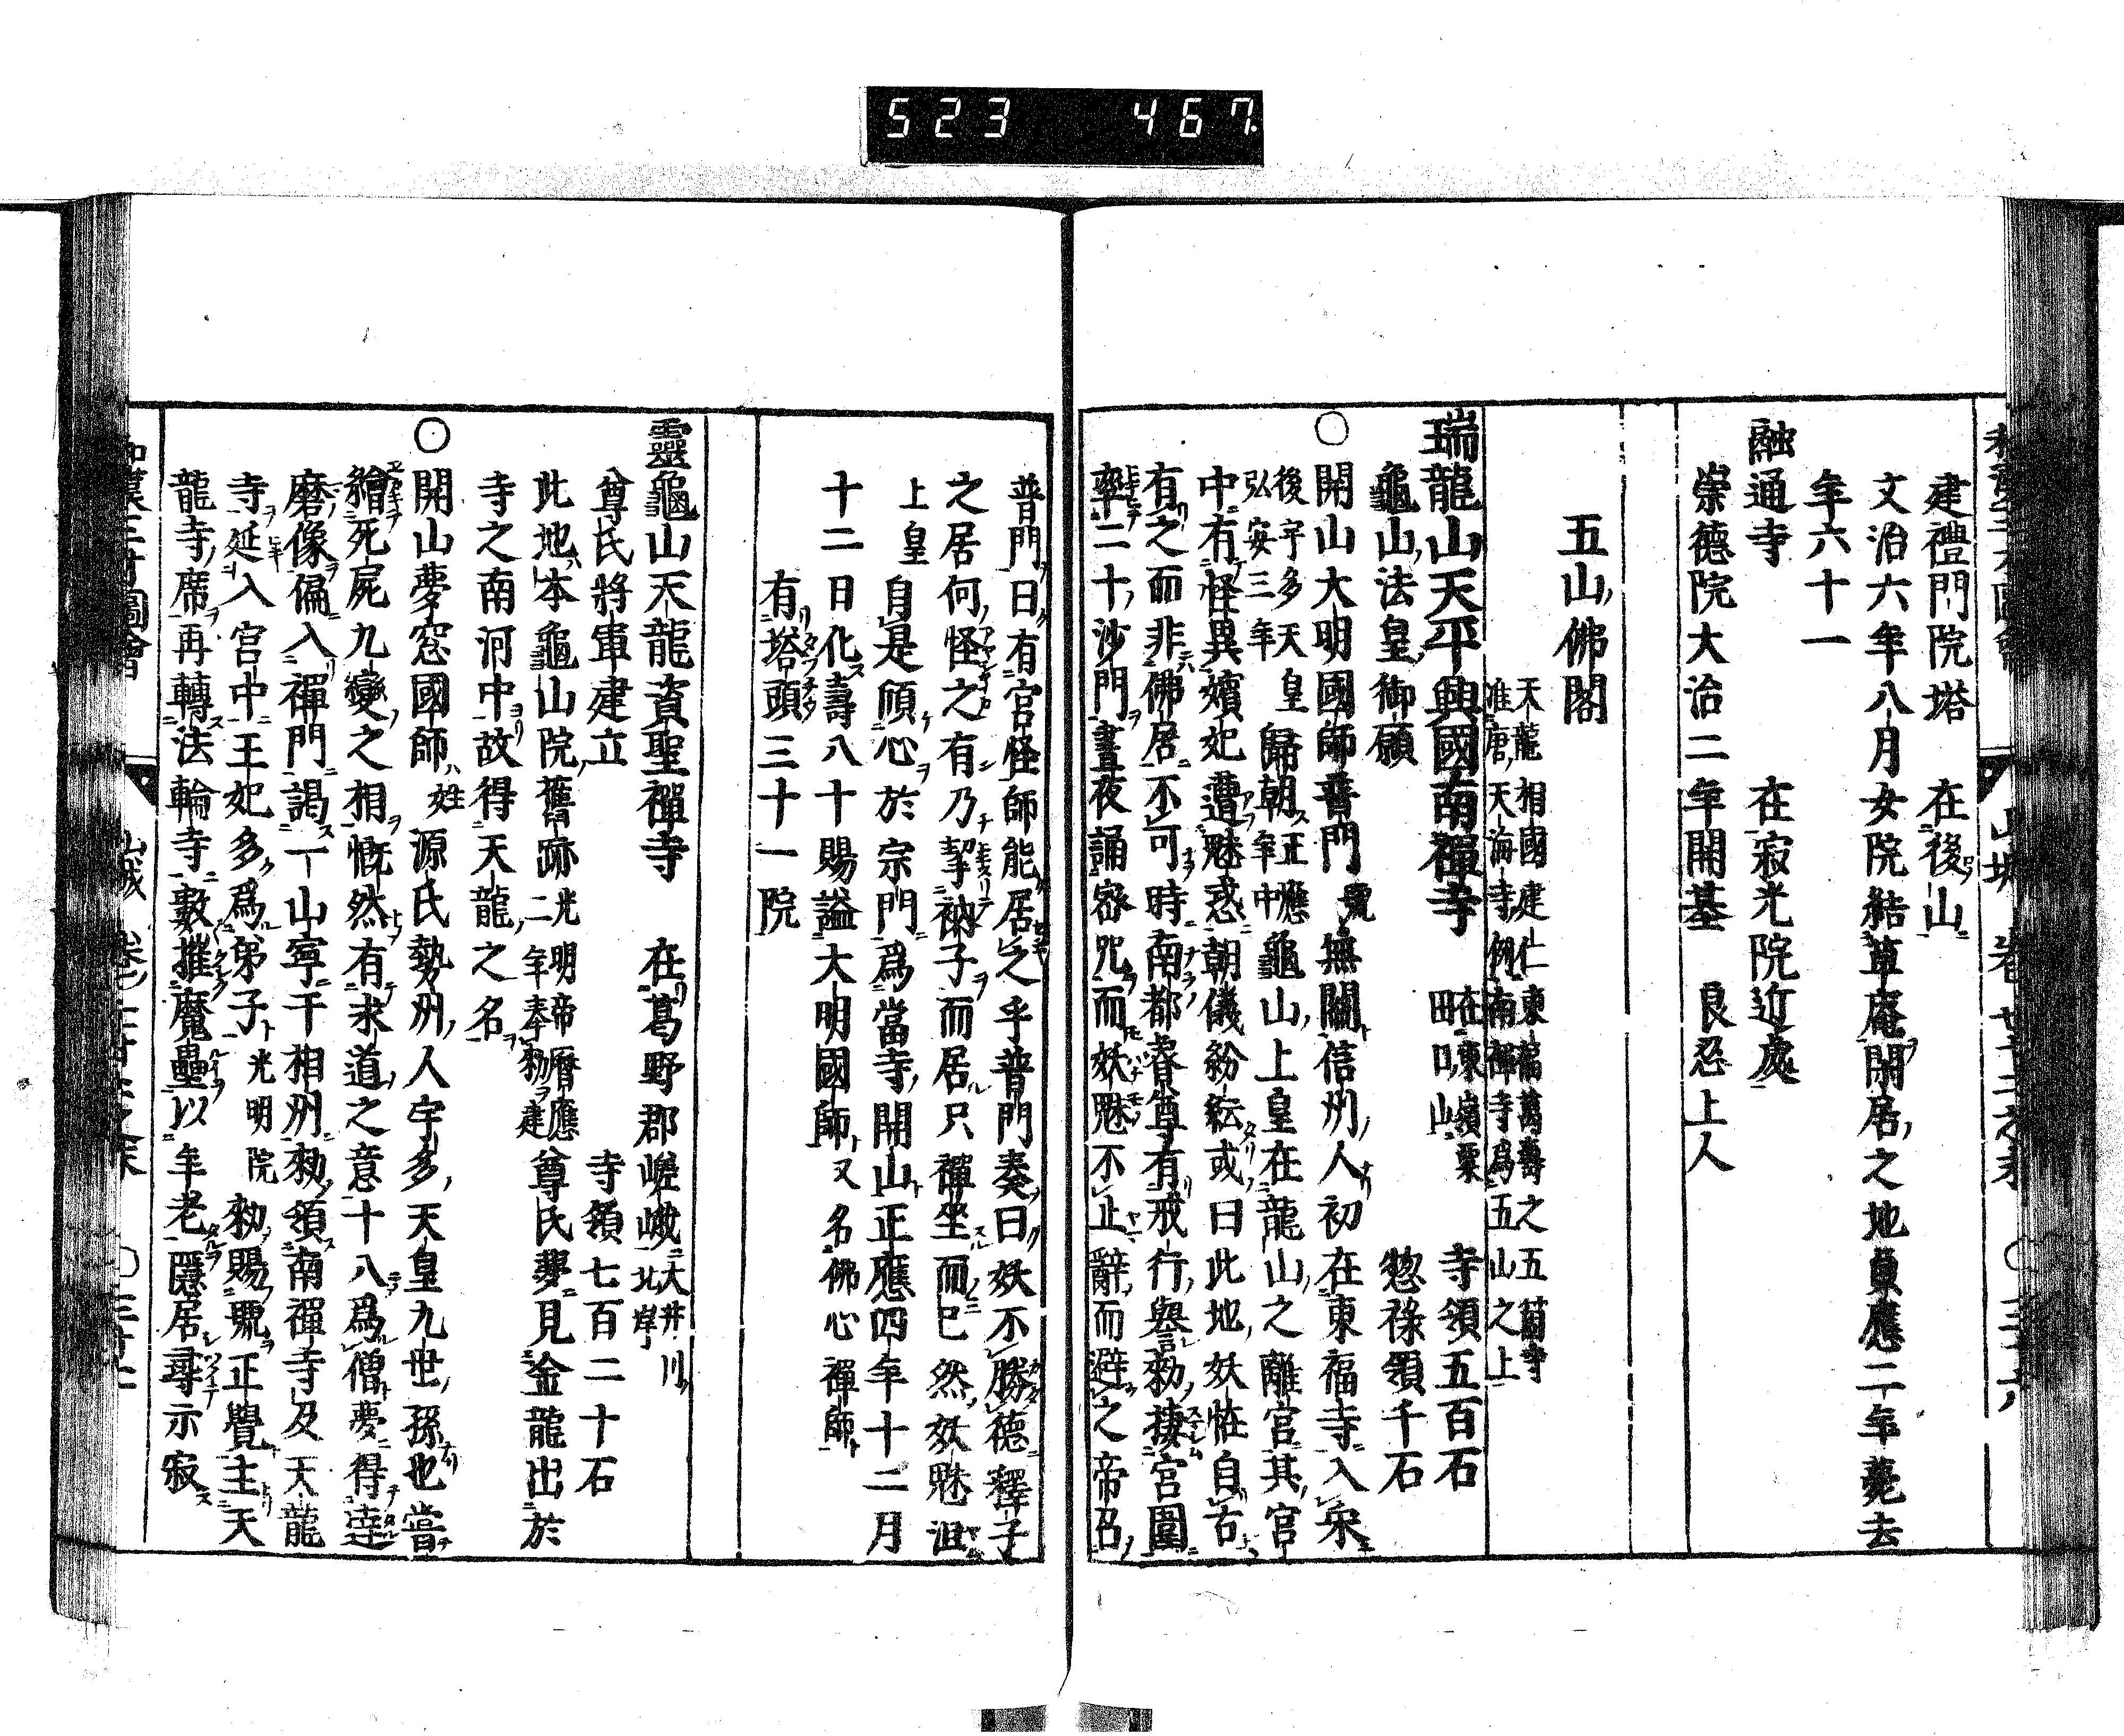 523 467
建禮門院塔 在後山
文治六年八月女院結草庵閑居之地貞應二年薨去
年六十一
融通寺 在寂光院近處
崇德院大治二年開基 良忍上人
五山佛閣
天龍 相國 建仁 東福 萬壽之五箇寺
准唐天海寺例南禪寺為五山之上
瑞龍山天平興國南禪寺 在東嶺粟田口山 寺領五百石
龜山法皇御願 惣祿領千石
○開山大明國師普門號無關信州人初在東福寺入宋
後宇多天皇弘安三年歸朝正應年中龜山上皇在龍山之離宮其宮
中有怪異嬪妃遭魅惑朝儀紛紜或曰此地妖恠自古
有之而非佛居不可時南都睿尊有戒行譽勅棲宮闈
率二十沙門晝夜誦密咒而妖魅不止辭而避之帝召
普門曰有宮怪師能居之乎普門奏曰妖不勝德釋子
之居何怪之有乃挈衲子而居只禪坐而已然妖魅沮
上皇自是傾心於宗門為當寺開山正應四年十二月
十二日化壽八十賜謚大明國師又名佛心禪師
有塔頭三十一院
靈龜山天龍資聖禪寺 在葛野郡嵯峨大井川北岸
尊氏將軍建立 寺領七百二十石
此地本龜山院舊跡光明帝曆應二年奉勅建尊氏夢見金龍出於
寺之南河中故得天龍之名
○開山夢窓國師姓源氏勢州人宇多天皇九世孫也當
繪死屍九變之相慨然有求道之意十八為僧夢得達
磨像偏入禪門謁一山寧于相州勅領南禪寺及天龍
寺延入宮中王妃多為弟子光明院勅賜號正覺主天
龍寺席再轉法輪寺數摧魔壘以年老隱居尋示寂